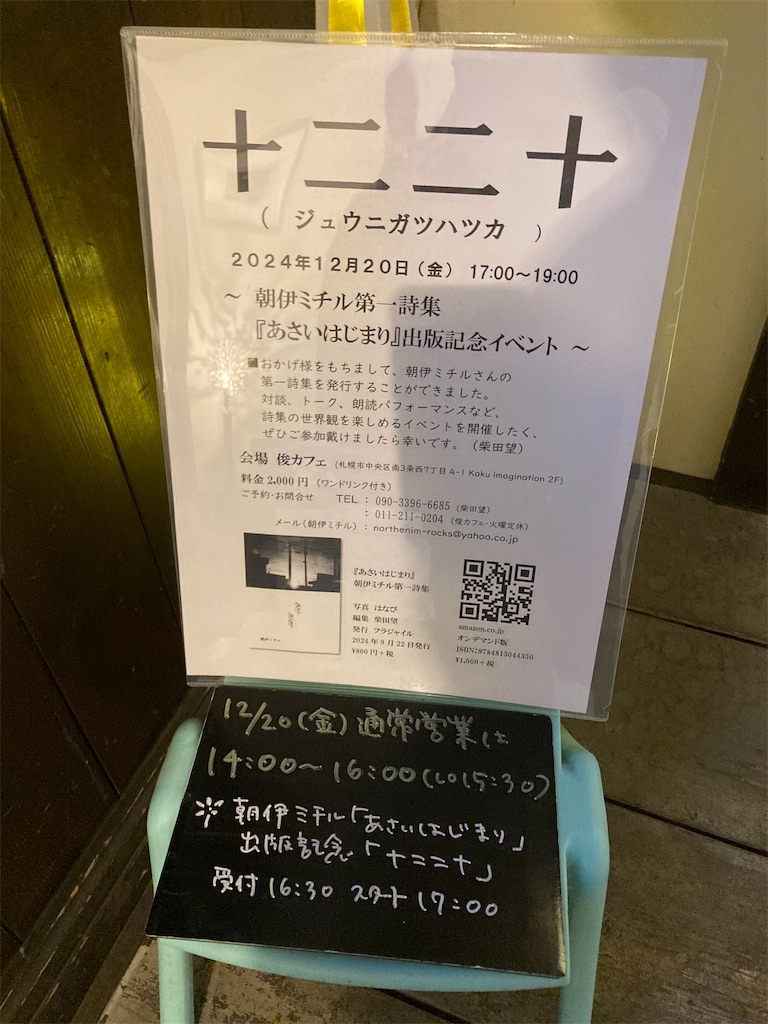 十二二十
( ジュウニガツハツカ )
2024年12月20日(金) 17:00〜19:00
〜 朝伊ミチル第一詩集
『あさいはじまり』出版記念イベント 〜
■おかげ様をもちまして、朝伊ミチルさんの
第一詩集を発行することができました。
対談、トーク、朗読パフォーマンスなど、
詩集の世界観を楽しめるイベントを開催したく、
ぜひご参加戴けましたら幸いです。(柴田望)
会場 俊カフェ (札幌市中央区南3条西7丁目4-1 Kaku imagination 2F)
料金 2,000円 (ワンドリンク付き)
ご予約・お問合せ TEL : 090-3396-6685 (柴田望)
: 011-211-0204 (俊カフェ・火曜定休)
メール(朝伊ミチル) : northenim-rocks@yahoo.co.jp
あさい
はじまり
朝伊ミチル
『あさいはじまり』
朝伊ミチル第一詩集
写真 はなび
編集 柴田望
発行 フラジャイル
2024年9月22日発行
¥800円+税
amazon.co.jp
オンデマンド版
ISBN:9784815044350
¥1,000+税
12/20(金)通常営業は
14:00〜16:00(LO15:30)
※朝伊ミチル「あさいはじまり」
出版記念「十二二十」
受付16:30 スタート17:00